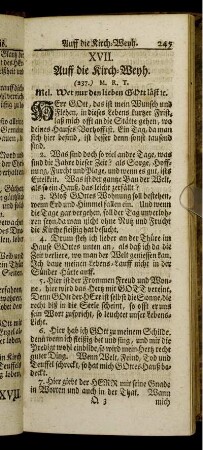 Auff die Kirch-Weyh. 245
XVII.
Auff die Kirch-Weyh.
(237.) M. R. T.
Mel. Wer nur den lieben GOtt läst ꝛc.
HErr GOtt, das ist mein Wunsch und
Flehen, in dieses Lebens kurtzer Frist,
stets an die Stätte gehen, wo
deines Hauses Vorhoff ist. Ein Tag, da man
sich hier befind, ist besser denn sonst tausend
sind.
2. Was sind doch so viel andre Tage, was
sind die Jahre dieser Zeit? als Sorge, Hoff-
nung, Furcht und Plage, und wenns es gut, ists
Eitelkeit. Was ist das gantze Haus der Welt,
als so ein Hauß, das leicht zerfällt?
3. Blos GOttes Wohnung soll bestehen,
wenn Erd und Himmel fallen ein. Und wenn
die Tage gar vergehen, soll der Tag unverloh-
ren seyn, da man nicht ohne Nutz und Frucht
die Kirche fleißig hat besucht.
4. Drum steh ich lieber an der Thüre im
Hause GOttes unten an, als daß ich da die
Zeit verliere, wo man der Welt geniessen kan.
Ich baue meinen Lebens-Lauff nicht in der
Sünder Hütte auff.
5. Hier ist der Frommen Freud und Won-
ne, hier wird das Hertz mit GOTT vereint.
Denn GOtt der HErr ist selbst die Sonne die
recht biß in die Seele scheint, so offt er uns
sein Wort zuspricht, so leuchtet unser Lebens-
Licht.
6. Hier hab ich GOtt zu meinem Schilde,
denn wenn ich fleißig bet und sing, und mir die
Predigt wohl einbilde, so wird mein Hertz recht
guter Ding. Wann Welt, Feind, Tod und
Teuffel schreckt, so hat mich GOttes Hauß be-
deckt.
7. Hier giebt der HERR mir seine Gnade
in Worten und auch in der That. Wann
Q 3 mich